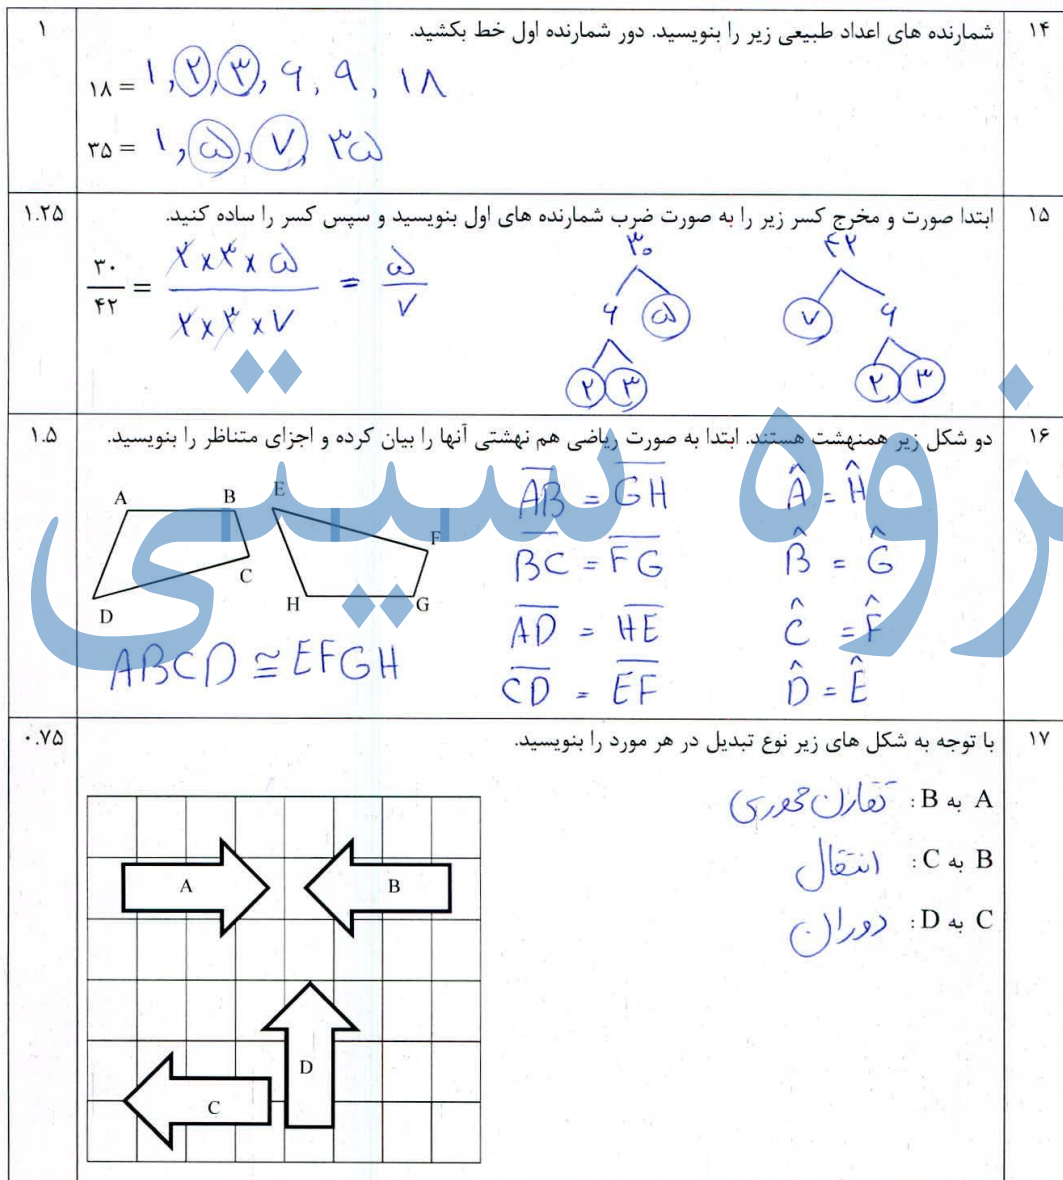 ۱۴ شمارنده های اعداد طبیعی زیر را بنویسید. دور شمارنده اول خط بکشید. ۱
۱۸ = ۱, ۲, ۳, ۶, ۹, ۱۸
۳۵ = ۱, ۵, ۷, ۳۵
۱۵ ابتدا صورت و مخرج کسر زیر را به صورت ضرب شمارنده های اول بنویسید و سپس کسر را ساده کنید. ۱.۲۵
۳۰/۴۲ = ۲×۳×۵ / ۲×۳×۷ = ۵/۷
۳۰ ۴۲
۶ ۵ ۷ ۶
۲ ۳ ۲ ۳
۱۶ دو شکل زیر همنهشت هستند. ابتدا به صورت ریاضی هم نهشتی آنها را بیان کرده و اجزای متناظر را بنویسید. ۱.۵
A B E
F
C
D H G
ABCD ≅ EFGH
AB = GH Â = Ĥ
BC = FG B̂ = Ĝ
AD = HE Ĉ = F̂
CD = EF D̂ = Ê
زوه سیتی
۱۷ با توجه به شکل های زیر نوع تبدیل در هر مورد را بنویسید. ۰.۷۵
A به B: تقارن محوری
B به C: انتقال
C به D: دوران
A B
D
C